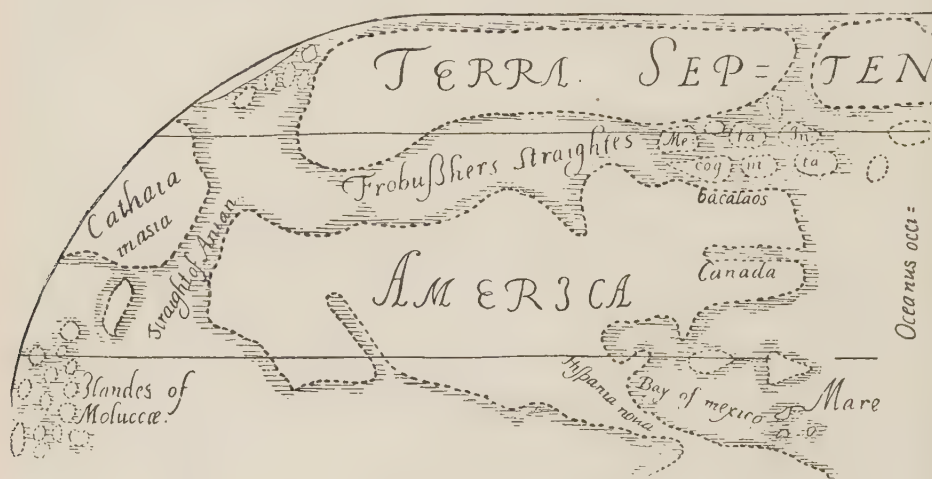 TERRA. SEP=
TEN
Frobußhers straightes
Me
ta
In
cog
ni
ta
bacalaos
Cathaia
in asia
Straight of Anian
AMERICA
Canada
Oceanus occi=
Ilandes of
Moluccæ.
Hispania noua
Bay of mexico
Mare